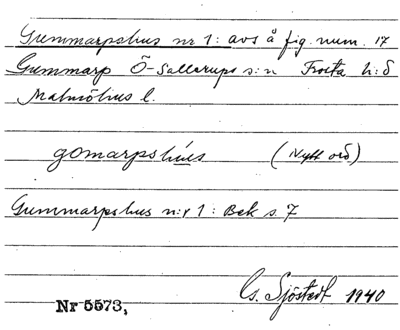 Gummarpshus nr 1: avs å fig. num. 17
Gummarp Ö-Sallerups s:n Frosta h:d
Malmöhus l.
gomarpshus (Nytt ord)
Gummarpshus n:r 1: Bek s. 7
G. Sjöstedt 1940
Nr 5573,